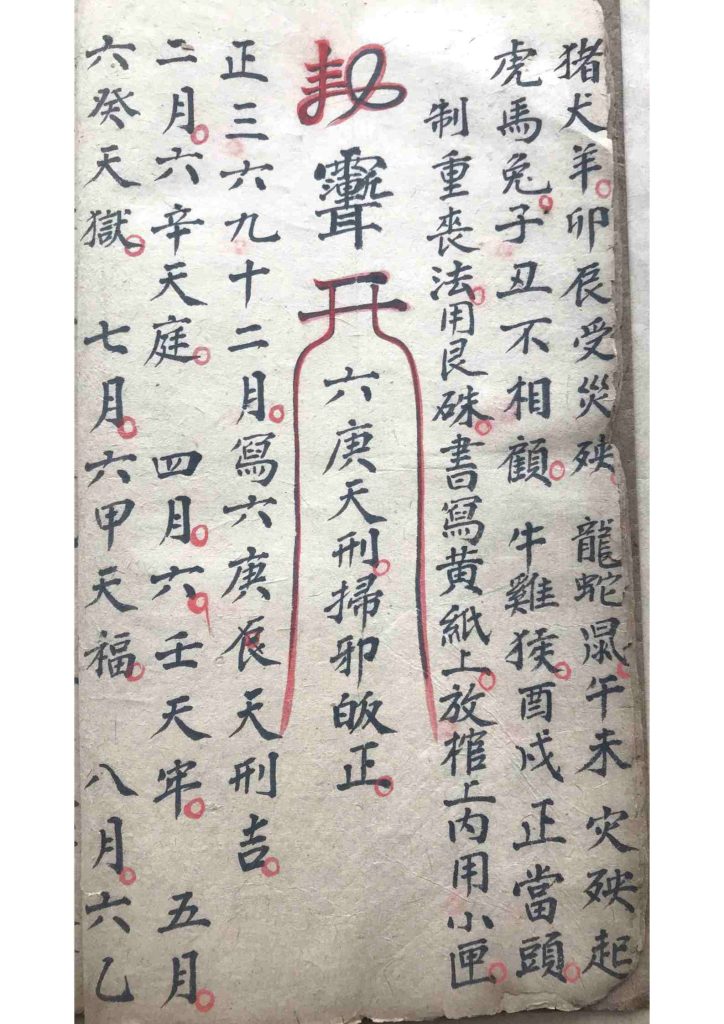 猪犬羊。卯辰受災殃。龍蛇鼠。午未灾殃起
虎馬兔。子丑不相顧。牛雞猴。酉戌正當頭。
制重喪法。用艮硃。書寫黄紙上。放棺上内用小匣。
六庚天刑。掃邪皈正。
正三六九十二月。寫六庚天刑吉。
二月。六辛天庭。四月。六壬天牢。五月。
六癸天獄。七月。六甲天福。八月。六乙